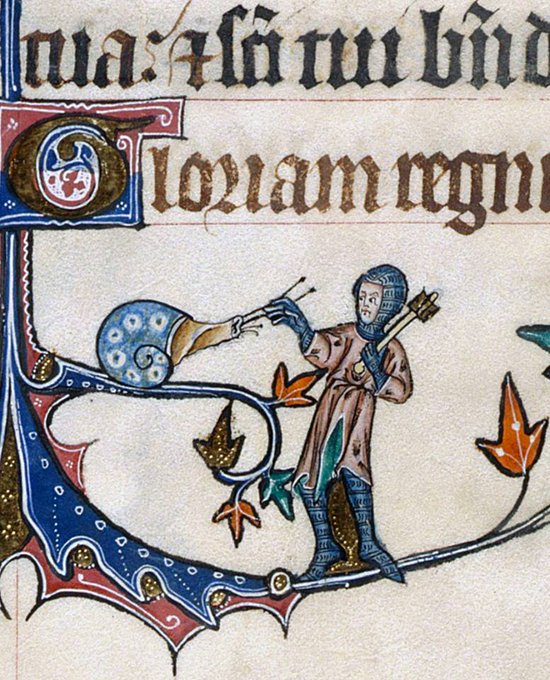 tua: ⁊ ſc̄i tui bn̄d
Gloriam regni